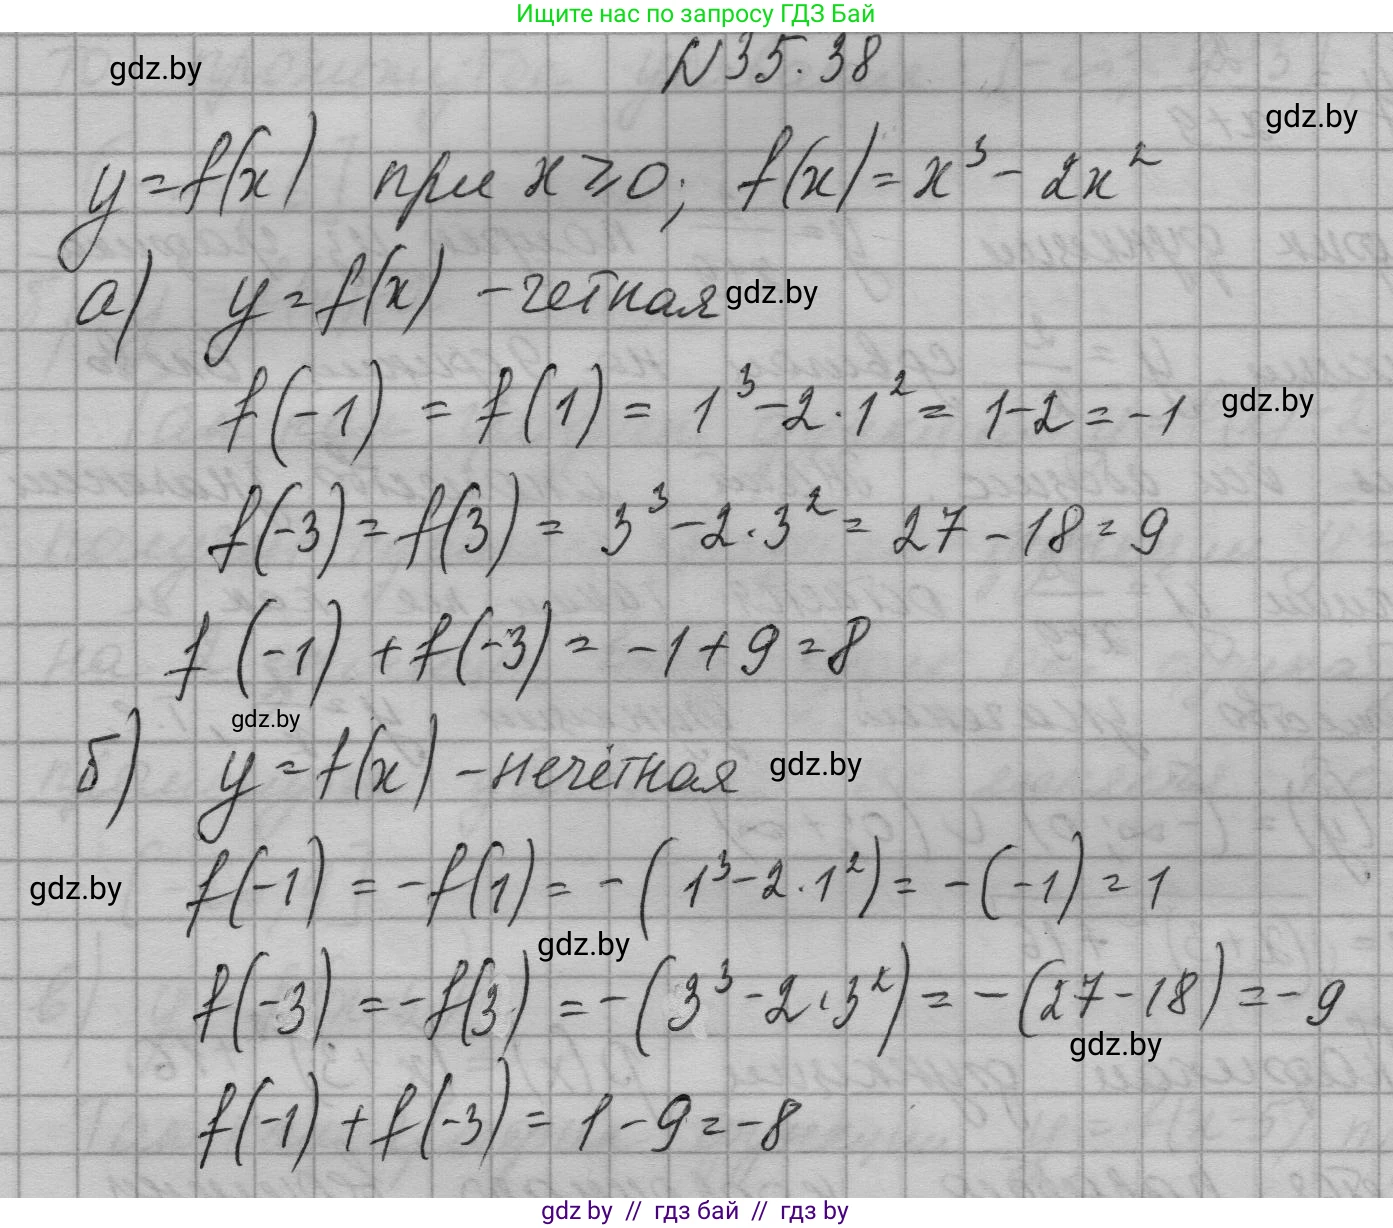 Ищите нас по запросу ГДЗ Бай
N 35.38
gdz.by
gdz.by
y = f(x) при x ⩾ 0; f(x) = x³ - 2x²
а) y = f(x) - четная gdz.by
f(-1) = f(1) = 1³ - 2·1² = 1 - 2 = -1 gdz.by
f(-3) = f(3) = 3³ - 2·3² = 27 - 18 = 9
f(-1) + f(-3) = -1 + 9 = 8
gdz.by
б) y = f(x) - нечётная gdz.by
gdz.by f(-1) = -f(1) = -(1³ - 2·1²) = -(-1) = 1
gdz.by
f(-3) = -f(3) = -(3³ - 2·3²) = -(27 - 18) = -9
gdz.by
f(-1) + f(-3) = 1 - 9 = -8
gdz.by // гдз бай // гдз by